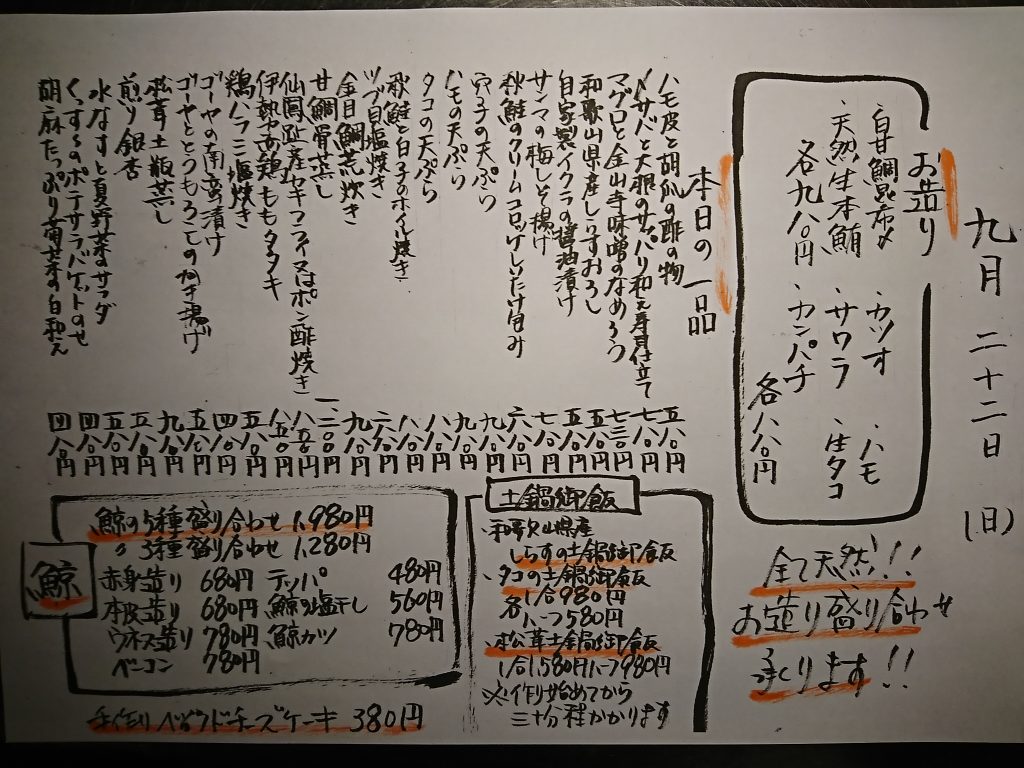 九月 二十二日 (日)
お造り
・白甘鯛昆布〆 ・カツオ ・ハモ
・天然生本鮪 ・サワラ ・生タコ
各九八〇円 ・カンパチ
各八八〇円
全て天然!!
お造り盛り合わせ
承ります!!
本日の一品
ハモ皮と胡瓜の酢の物 五八〇円
〆サバと大根のサッパリ和え寿司仕立て 七八〇円
マグロと金山寺味噌のなめろう 七三〇円
和歌山県産しらすおろし 五八〇円
自家製イクラの醤油漬け 五八〇円
サンマの梅しそ揚げ 七八〇円
秋鮭のクリームコロッケしいたけ包み 六八〇円
穴子の天ぷら 九八〇円
ハモの天ぷら 九八〇円
タコの天ぷら 八八〇円
秋鮭と白子のホイル焼き 八八〇円
ツブ貝塩焼き 六八〇円
金目鯛荒炊き 九八〇円
甘鯛骨蒸し 一二〇〇円
仙鳳趾産カキフライ又はポン酢焼き 八八〇円
伊勢赤鶏ももタタキ 八五〇円
鶏ハラミ塩焼き 五八〇円
ゴーヤの南蛮漬け 四八〇円
ゴーヤととうもろこしのかき揚げ 五八〇円
松茸土瓶蒸し 九八〇円
煎り銀杏 五八〇円
水なすと夏野菜のサラダ 五八〇円
くんせいのポテサラバゲットのせ 四八〇円
胡麻たっぷり 白和え 四八〇円
土鍋御飯
・和歌山県産
しらすの土鍋御飯
・タコの土鍋御飯
各1合980円
ハーフ580円
・松茸土鍋御飯
1合1,580円ハーフ980円
※作り始めてから
三十分程かかります
鯨
鯨の5種盛り合わせ 1,980円
〃 3種盛り合わせ 1,280円
赤身造り 680円 テッパ 480円
本皮造り 680円 鯨の塩干し 560円
ウネス造り 780円 鯨カツ 780円
ベーコン 780円
手作りベイクドチーズケーキ 380円